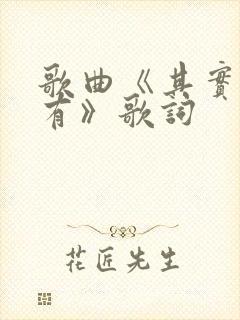 歌曲《其實
有》歌詞
花匠先生